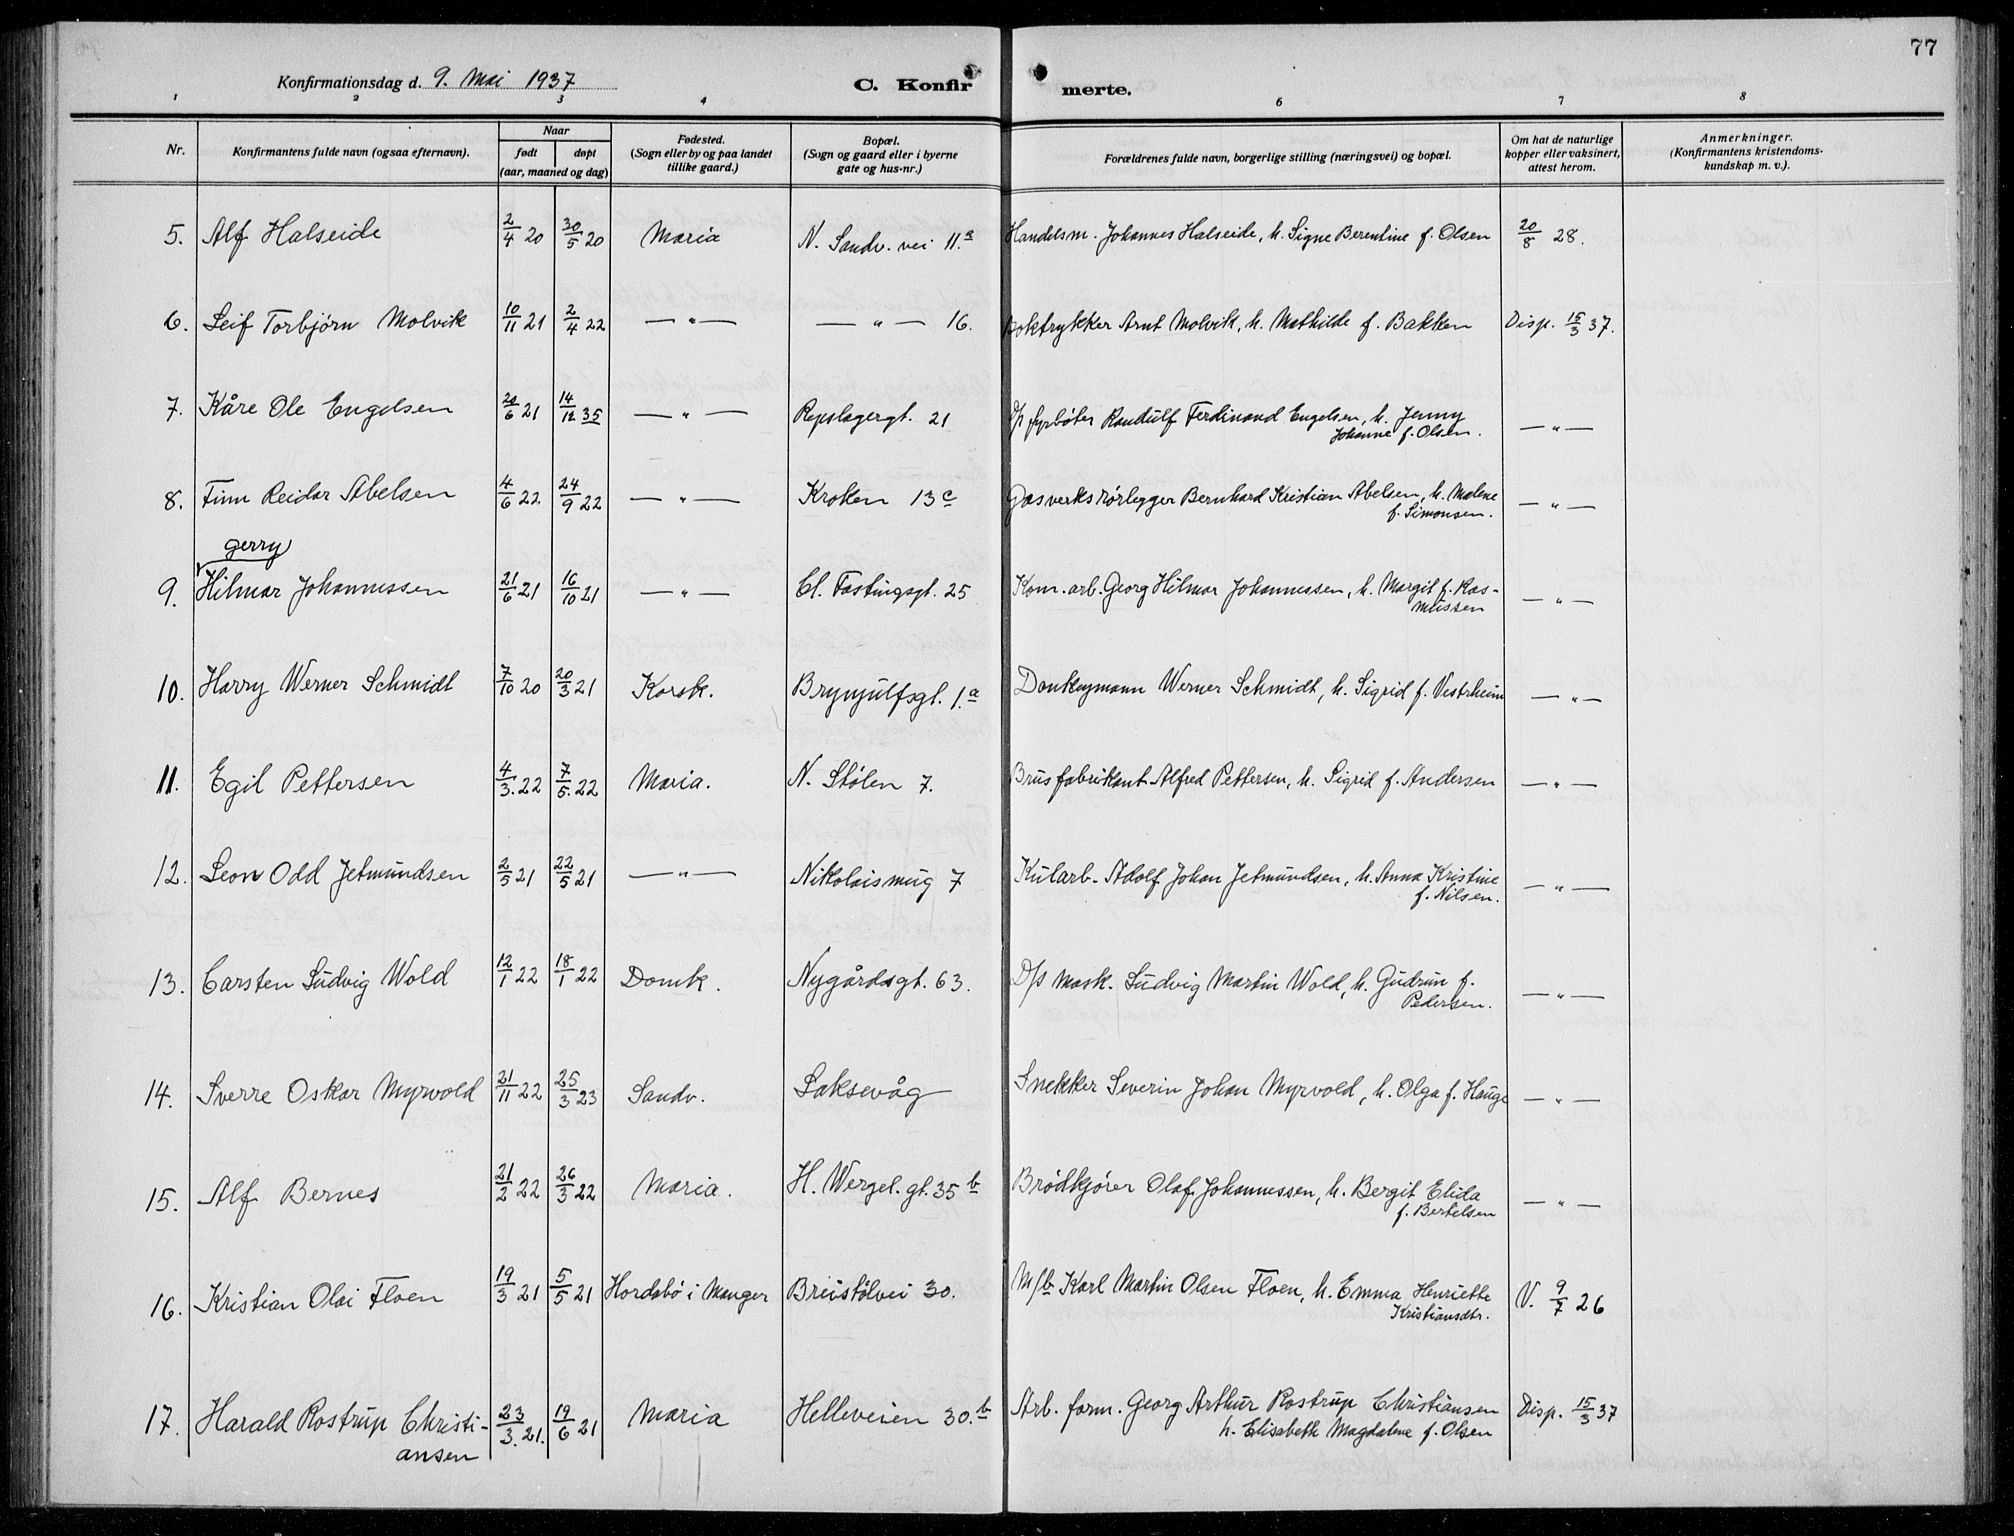 77
Konfirmationsdag d. 9. Mai 1937
C. Konfirmerte.
1 2 3 4 6 7 8
Nr.
Konfirmantens fulde navn (ogsaa efternavn).
Naar
født døpt
(aar, maaned og dag)
Fødested.
(Sogn eller by og paa landet
tillike gaard.)
Bopæl.
(Sogn og gaard eller i byerne
gate og hus-nr.)
Forældrenes fulde navn, borgerlige stilling (næringsvei) og bopæl.
Om hat de naturlige
kopper eller vaksinert,
attest herom.
Anmerkninger.
(Konfirmantens kristendoms-
kundskap m. v.).
5. Alf Halseide 2/4 20 30/5 20 Maria N. Sandv. vei 11.a Handelsm. Johannes Halseide, h. Signe Berentine f. Olsen 20/8 28.
6. Leif Torbjørn Molvik 10/11 21 2/4 22 — " — — " — 16. Boktrykker Arnt Molvik, h. Mathilde f. Bakken Disp. 15/3 37.
7. Kåre Ole Engelsen 20/6 21 14/12 35 — " — Repslagergt. 21 D/s fyrbøter Randulf Ferdinand Engelsen, h. Jenny
Johanne f. Olsen. — " —
8. Finn Reidar Abelsen 4/6 22 24/9 22 — " — Kroken 13c Gasverksrørlegger Bernhard Kristian Abelsen, h. Malene
f. Simonsen. — " —
Gerry
9. Hilmar Johannessen 21/6 21 16/10 21 — " — Cl. Fastingsgt. 25 Kom. arb. Georg Hilmar Johannessen, h. Margit f. Ras-
mussen — " —
10. Harry Werner Schmidt 7/10 20 20/3 21 Korsk. Brynjulfsgt. 1.a Donkeymann Werner Schmidt, h. Sigrid f. Vestrheim — " —
11. Egil Pettersen 4/3. 22 7/5. 22 Maria. N. Stølen 7. Brusfabrikant Alfred Pettersen, h. Sigrid f. Andersen — " —
12. Leon Odd Jetmundsen 2/5 21 22/5 21 — " — Nikolaismug 7 Kularb. Adolf Johan Jetmundsen, h. Anna Kristine
f. Nilsen. — " —
13. Carsten Ludvig Wold 12/1 22 18/1 22 Domk. Nygårdsgt. 63. D/s mask. Ludvig Martin Wold, h. Gudrun f.
Pedersen. — " —
14. Sverre Oskar Myrvold 21/11 22 25/3 23 Sandv. Laksevåg Snekker Severin Johan Myrvold, h. Olga f. Hauge — " —
15. Alf Bernes 21/2 22 26/3 22 Maria. H. Wergel. gt. 35 b Brødkjører Olaf Johannessen, h. Bergit Elida
f. Bertelsen — " —
16. Kristian Olai Floen 19/3 21 5/5 21 Hordabø i Manger Breistølvei 30. M/b Karl Martin Olsen Floen, h. Emma Henriette
Kristiansdtr. V. 9/7 26
17. Harald Rostrup Christi-
ansen 23/3. 21. 19/6 21 Maria Helleveien 30.b Arb. form. Georg Arthur Rostrup Christiansen
h. Elisabeth Magdalene f. Olsen Disp. 15/3 37